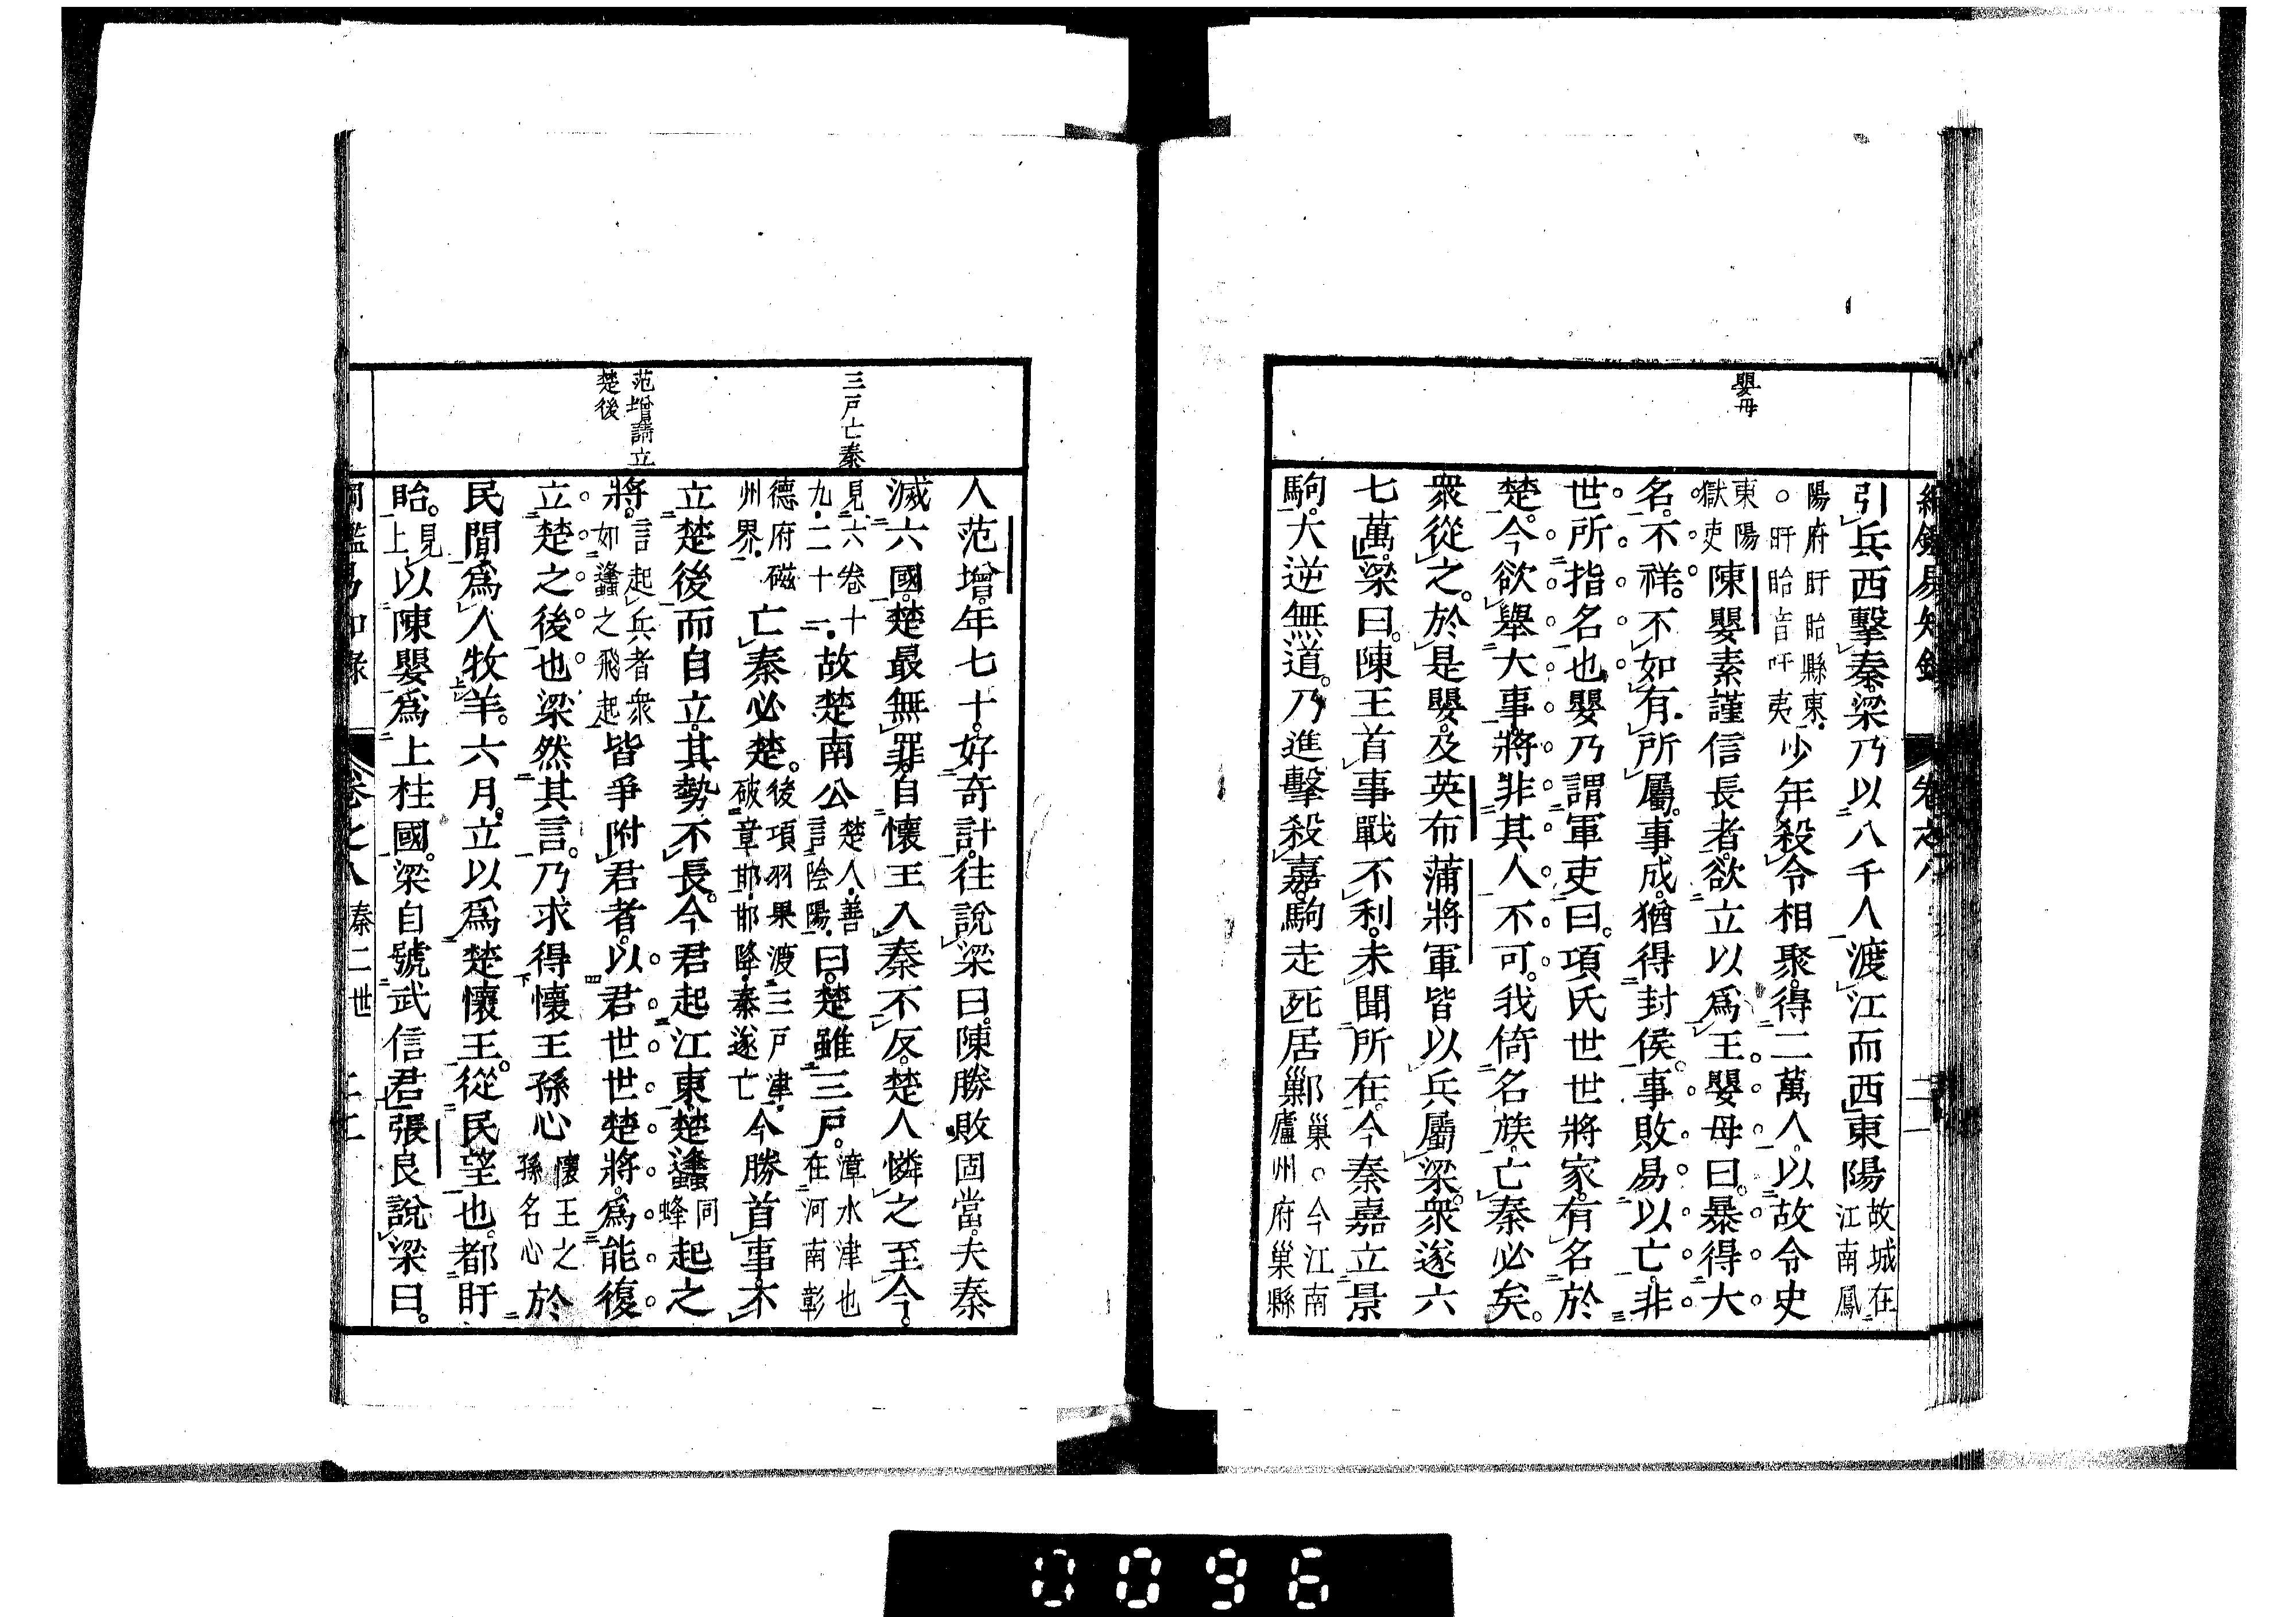 綱鑑易知錄 卷之八
嬰母
引兵西擊秦梁乃以八千人渡江而西東陽故城在江南鳳
陽府盱眙縣東。盱眙音吁夷少年殺令相聚。得二萬人。以故令史
東陽獄吏陳嬰素謹信長者。欲立以爲王。嬰母曰。暴得大
名。不祥。不如有所屬。事成。猶得封侯。事敗易以亡。非
世所指名也。嬰乃謂軍吏曰。項氏世世將家。有名於
楚。今欲舉大事。將非其人不可。我倚名族。亡秦必矣。
衆從之。於是嬰及英布蒲將軍皆以兵屬梁。衆遂六
七萬。梁曰。陳王首事戰不利。未聞所在。今秦嘉立景
駒。大逆無道。乃進擊殺嘉。駒走死居鄛鄛巢。今江南廬州府巢縣
三戶亡秦
范增請立楚後
人范增。年七十。好奇計。往說梁曰。陳勝敗固當。夫秦
滅六國。楚最無罪。自懷王入秦不反。楚人憐之至今。
見六卷十九二十一故楚南公楚人善言陰陽曰。楚雖三戶。漳水津也在河南彰
德府磁州界亡秦必楚。後項羽果渡三戶津破章邯邯降秦遂亡今勝首事。不
立楚後而自立。其勢不長。今君起江東。楚蠭同蜂起之
將。言起兵者衆如蠭之飛起皆爭附君者。以君世世楚將。爲能復
立楚之後也。梁然其言。乃求得懷王孫心懷王之孫名心於
民間爲人牧羊。六月。立以爲楚懷王。從民望也。都盱
眙。見上以陳嬰爲上柱國。梁自號武信君。張良說梁曰。
卷之八 秦二世